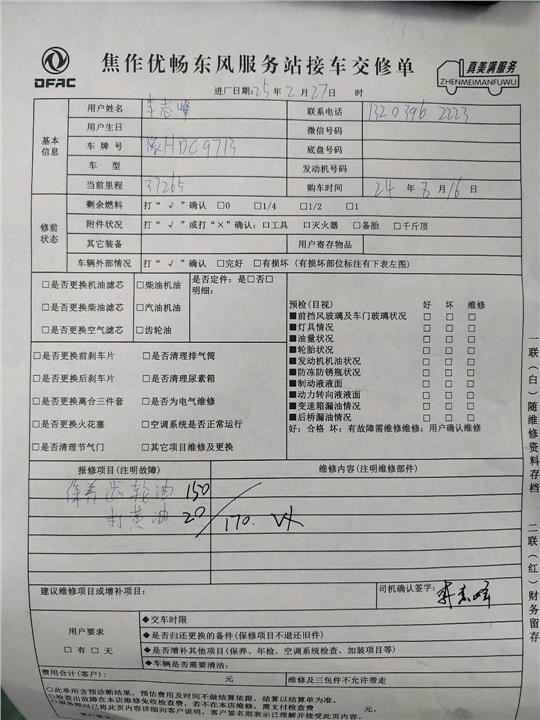 DFAC
焦作优畅东风服务站接车交修单
真美满服务
ZHENMEIMANFUWU
进厂日期:25年2月27日 时
基本信息
用户姓名 李志峰 联系电话 132 0396 2223
用户生日 微信号码
车牌号 豫HDC9713 底盘号码
车型 发动机号码
当前里程 37265 购车时间 24年8月16日
修前状态
剩余燃料 打“√”确认 □0 □1/4 □1/2 □1
附件状况 打“√”或打“×”确认:□工具 □灭火器 □备胎 □千斤顶
其它装备 用户寄存物品
车辆外部情况 打“√”确认 □完好 □有损坏(有损坏部位标注有下表左图)
□是否更换机油滤芯 □柴油机油 是否定件:是□否□
明细:
□是否更换柴油滤芯 □汽油机油
□是否更换空气滤芯 □齿轮油
□是否更换前刹车片 □是否清理排气筒
□是否更换后刹车片 □是否清理尿素箱
□是否更换离合三件套 □是否为电气维修
□是否更换火花塞 □空调系统是否正常运行
□是否清理节气门 □其它项目维修及更换
预检(目视) 好 坏 维修
■前挡风玻璃及车门玻璃状况 □ □ □
■灯具情况 □ □ □
■油量状况 □ □ □
■轮胎状况 □ □ □
■发动机机油状况 □ □ □
■防冻防锈瓶状况 □ □ □
■制动液液面 □ □ □
■动力转向液液面 □ □ □
■变速箱漏油情况 □ □ □
■后桥漏油情况 □ □ □
好:合格 坏:有故障需维修维修:用户确认维修
报修项目(注明故障) 维修内容(注明维修部件)
保养齿轮油 150
打黄油 20 170.
建议维修项目或增补项目: 司机确认签字: 李志峰
用户要求
□有 □无
◆交车时限
◆是否归还更换的备件(保修项目不退还旧件)
◆是否增补其他项目(保养、年检、空调系统检查、加装项目等)
◆车辆是否需要清洁:
费用合计(客户): 元 维修及三包件不允许带走
○此单所含预诊断结果、预估费用及时间不做结算依据,结算以结算单为准。
○检查出故障在本店维修免收检查费,若不在本店维修,需支付检查费 元
○服务顾问已将此页内容详细向客户说明。客户签名则表示已理解并接受此页内容。
一联(白)随维修资料存档
二联(红)财务留存